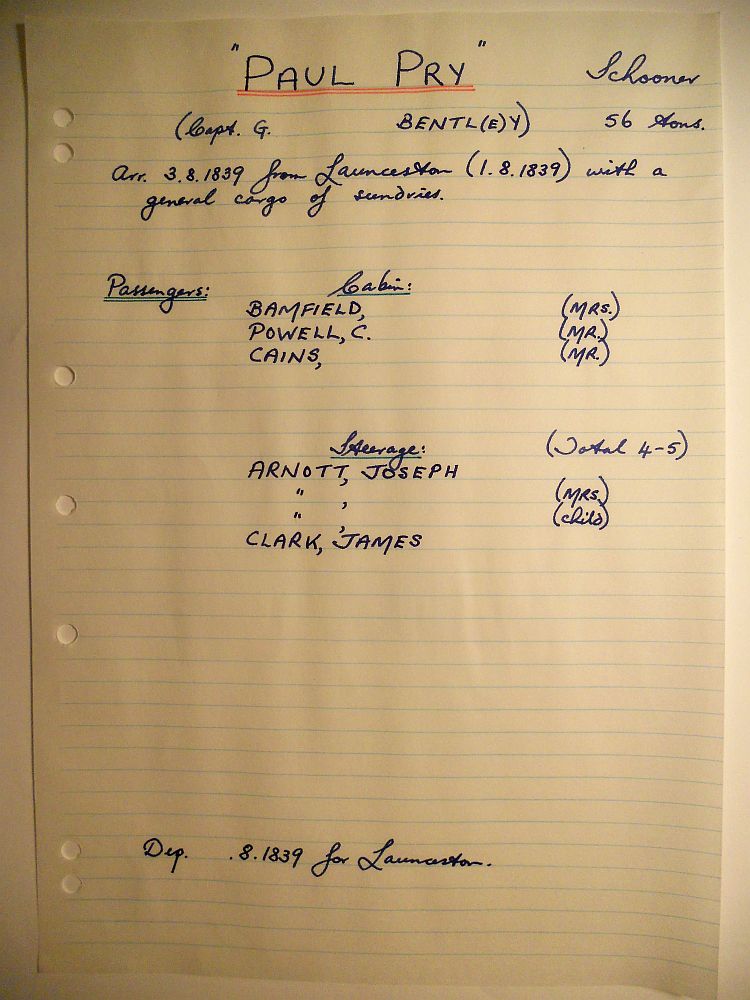 "PAUL PRY" Schooner
(Capt. G. BENTL(E)Y) 56 tons.
Arr. 3.8.1839 from Launceston (1.8.1839) with a
general cargo of sundries.
Passengers: Cabin:
BAMFIELD, (MRS.)
POWELL, C. (MR.)
CAINS, (MR.)
Steerage: (Total 4-5)
ARNOTT, JOSEPH
" , (MRS.)
" , (child)
CLARK, JAMES
Dep. .8.1839 for Launceston.